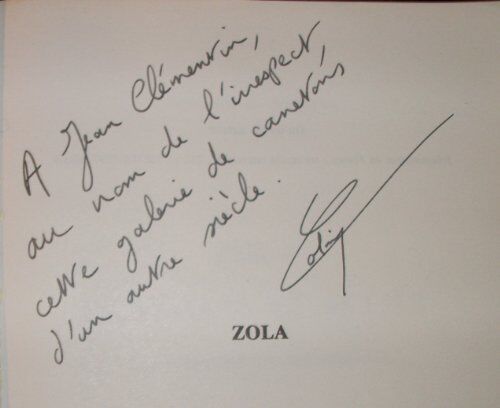 A Jean Clémentin,
au nom de l'irrespect,
cette galerie de canetons
d'un autre siècle.
ZOLA